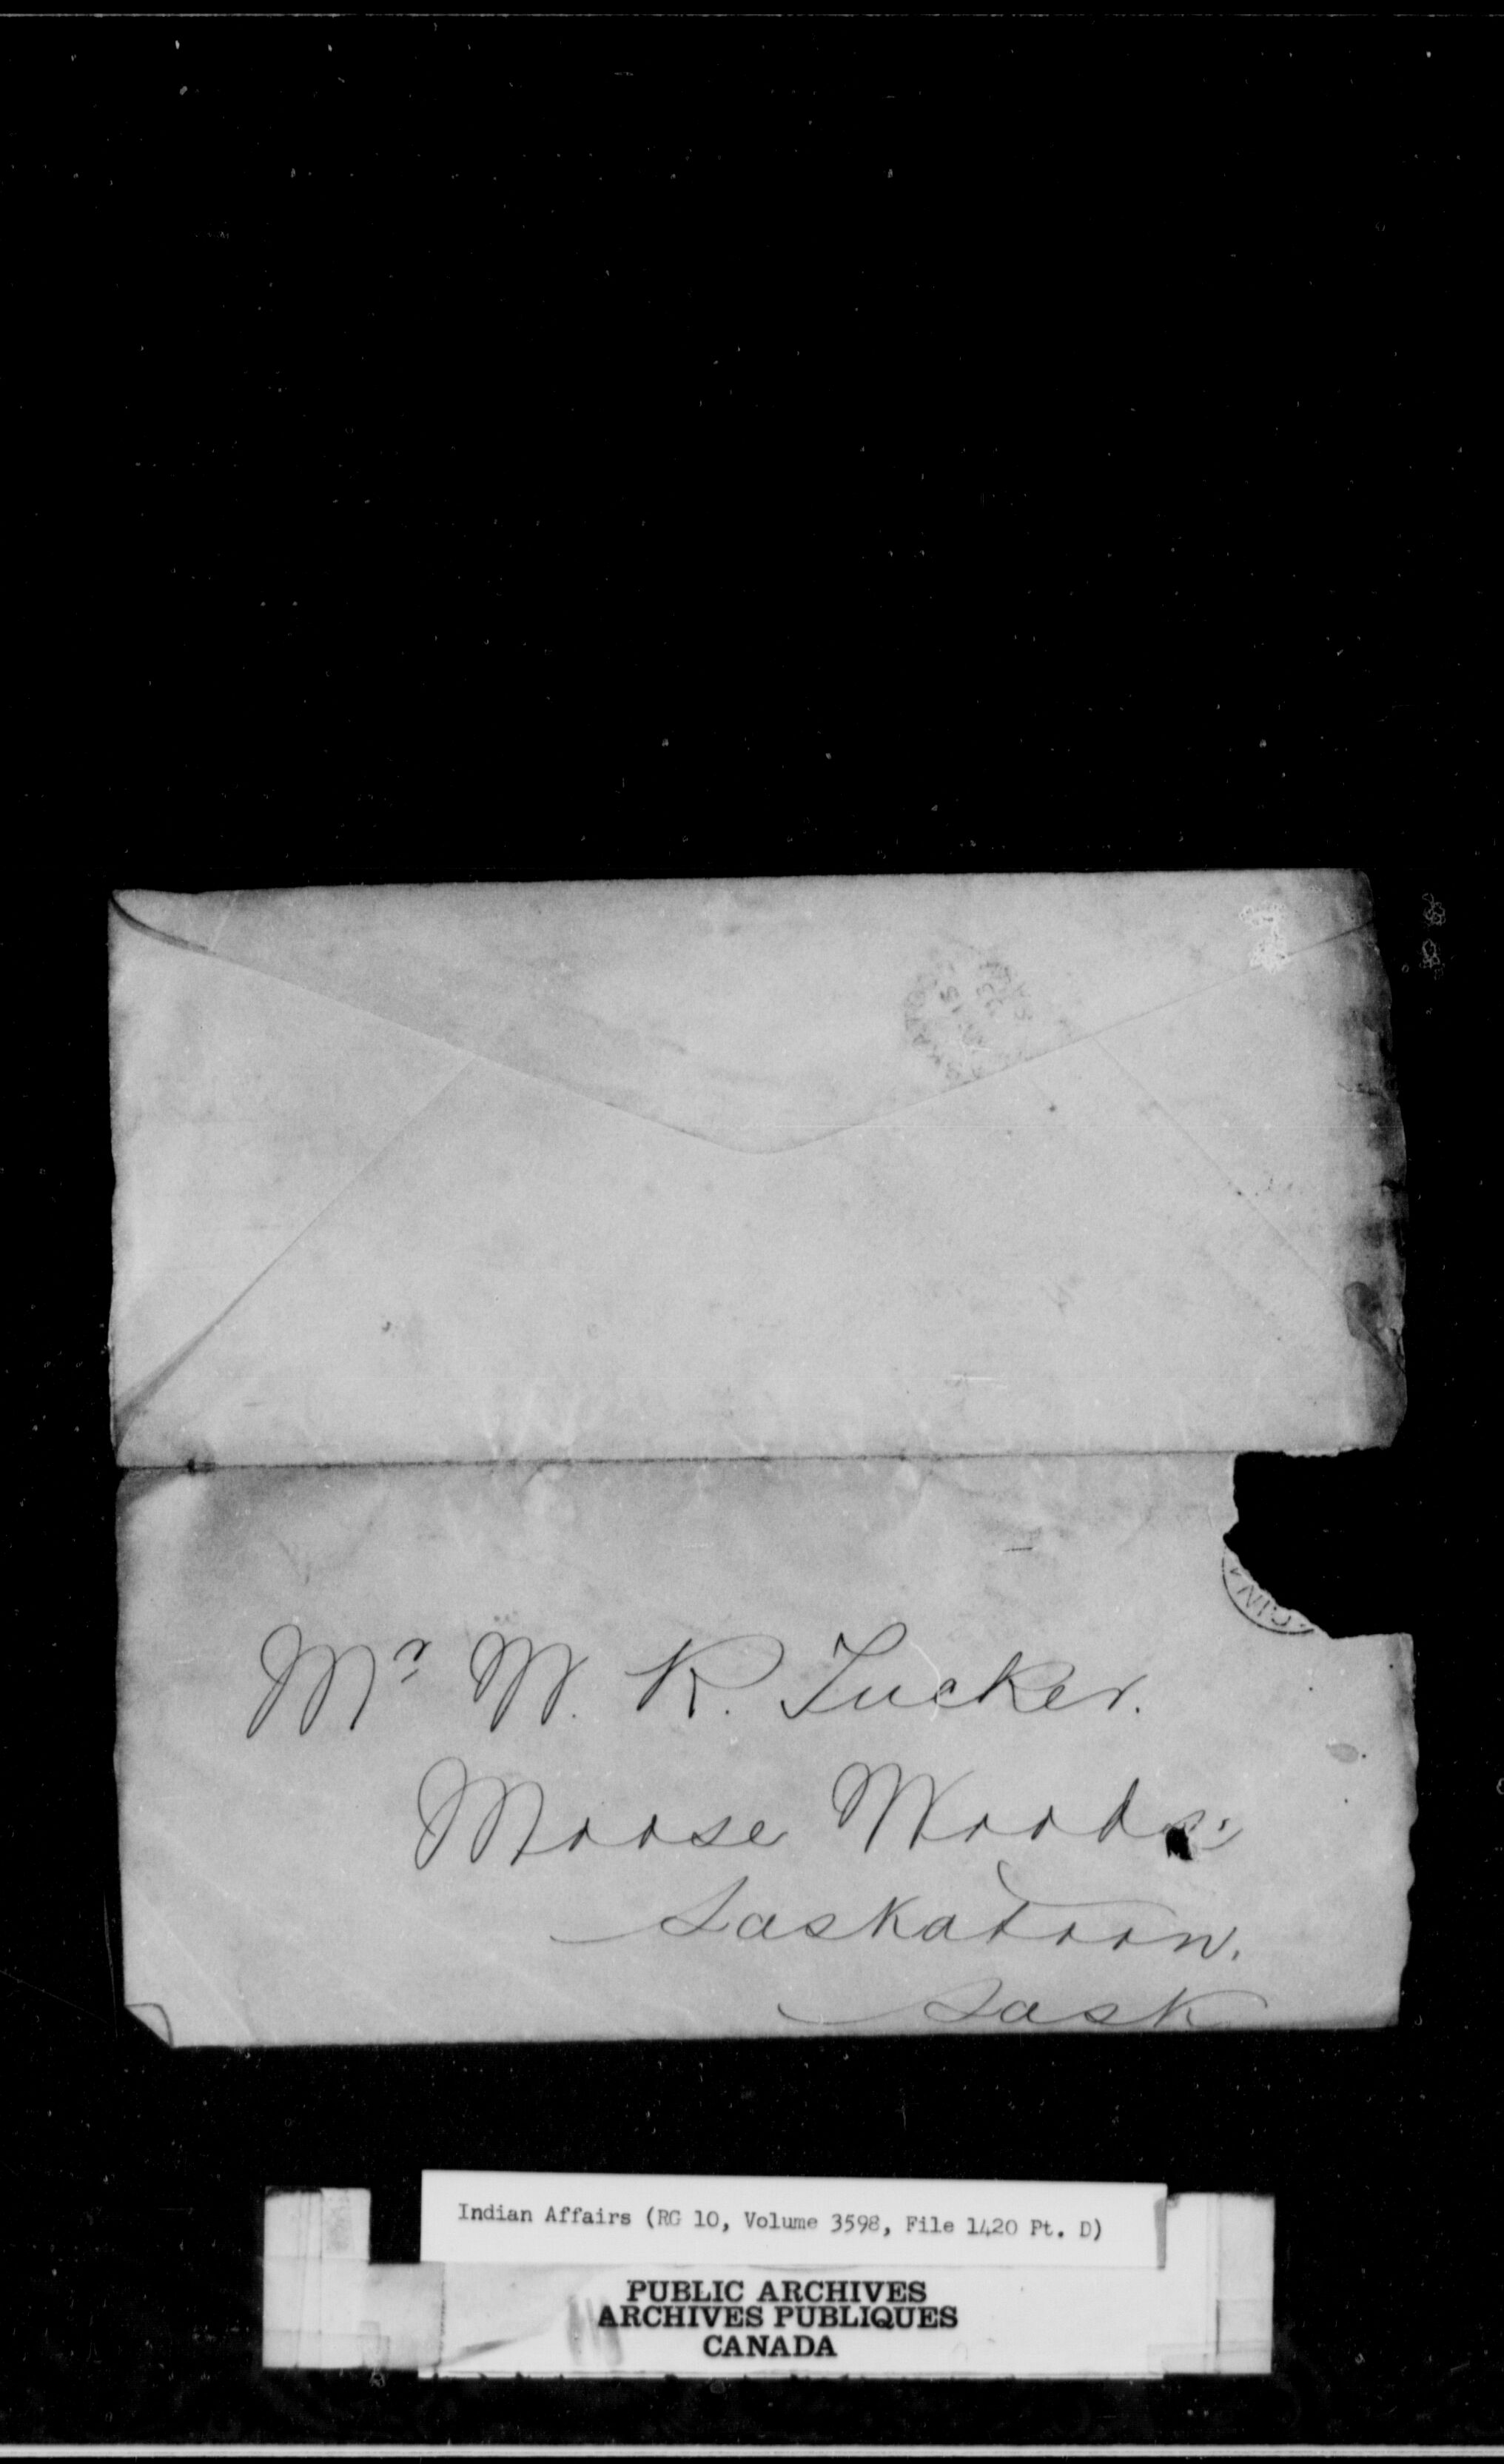 Mr W. R. Tucker.
Moose Woods.
Saskatoon.
Sask
Indian Affairs (RG 10, Volume 3598, File 1420 Pt. D)
PUBLIC ARCHIVES
ARCHIVES PUBLIQUES
CANADA